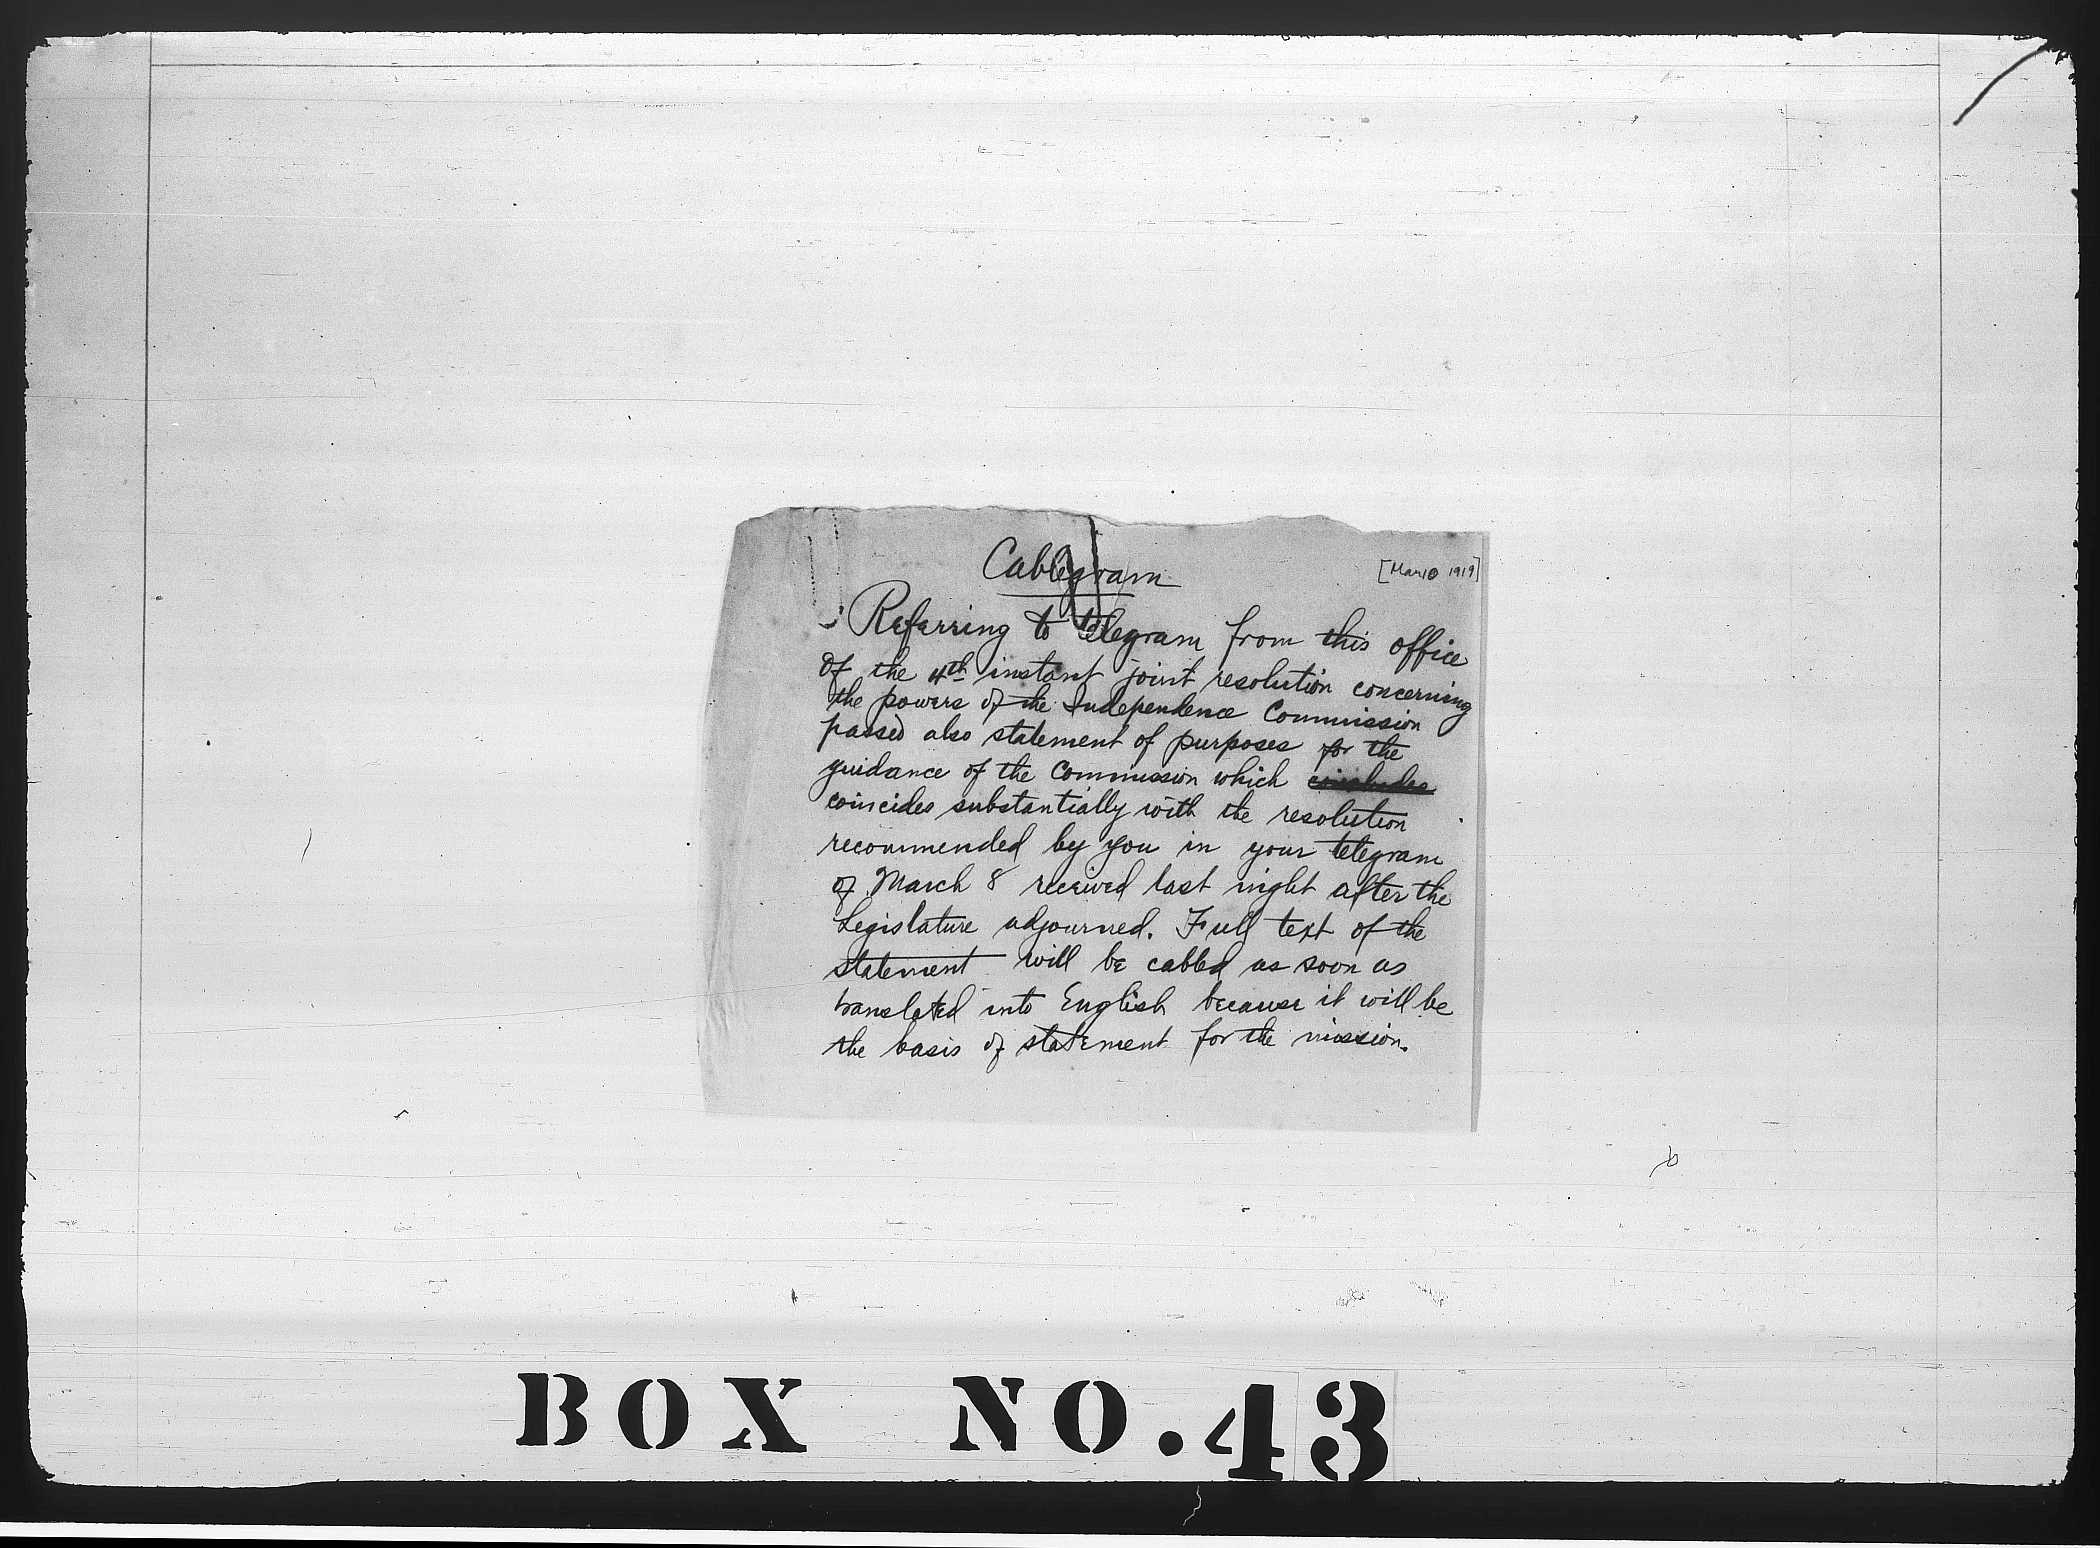 Cablegram
[Mar 10 1919]
Referring to telegram from this office
of the 4th instant joint resolution concerning
the powers of the Independence Commission
passed also statement of purposes for the
guidance of the Commission which
coincides substantially with the resolution
recommended by you in your telegram
of March 8 received last night after the
Legislature adjourned. Full text of the
statement will be cabled as soon as
translated into English because it will be
the basis of statement for the mission.
BOX NO. 43